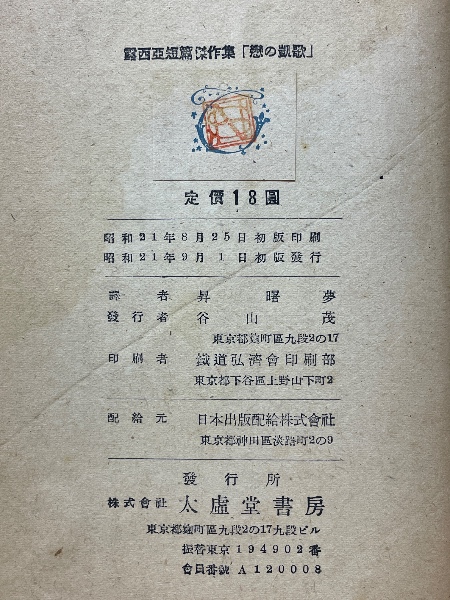 露西亞短篇傑作集「戀の凱歌」
定價18圓
昭和21年8月25日初版印刷
昭和21年9月1日初版發行
譯者 昇曙夢
發行者 谷山茂
東京都麹町區九段2の17
印刷者 鐵道弘濟會印刷部
東京都下谷區上野山下町2
配給元 日本出版配給株式會社
東京都神田區淡路町2の9
發行所
株式會社 太虛堂書房
東京都麹町區九段2の17九段ビル
振替東京194902番
會員番號A120008